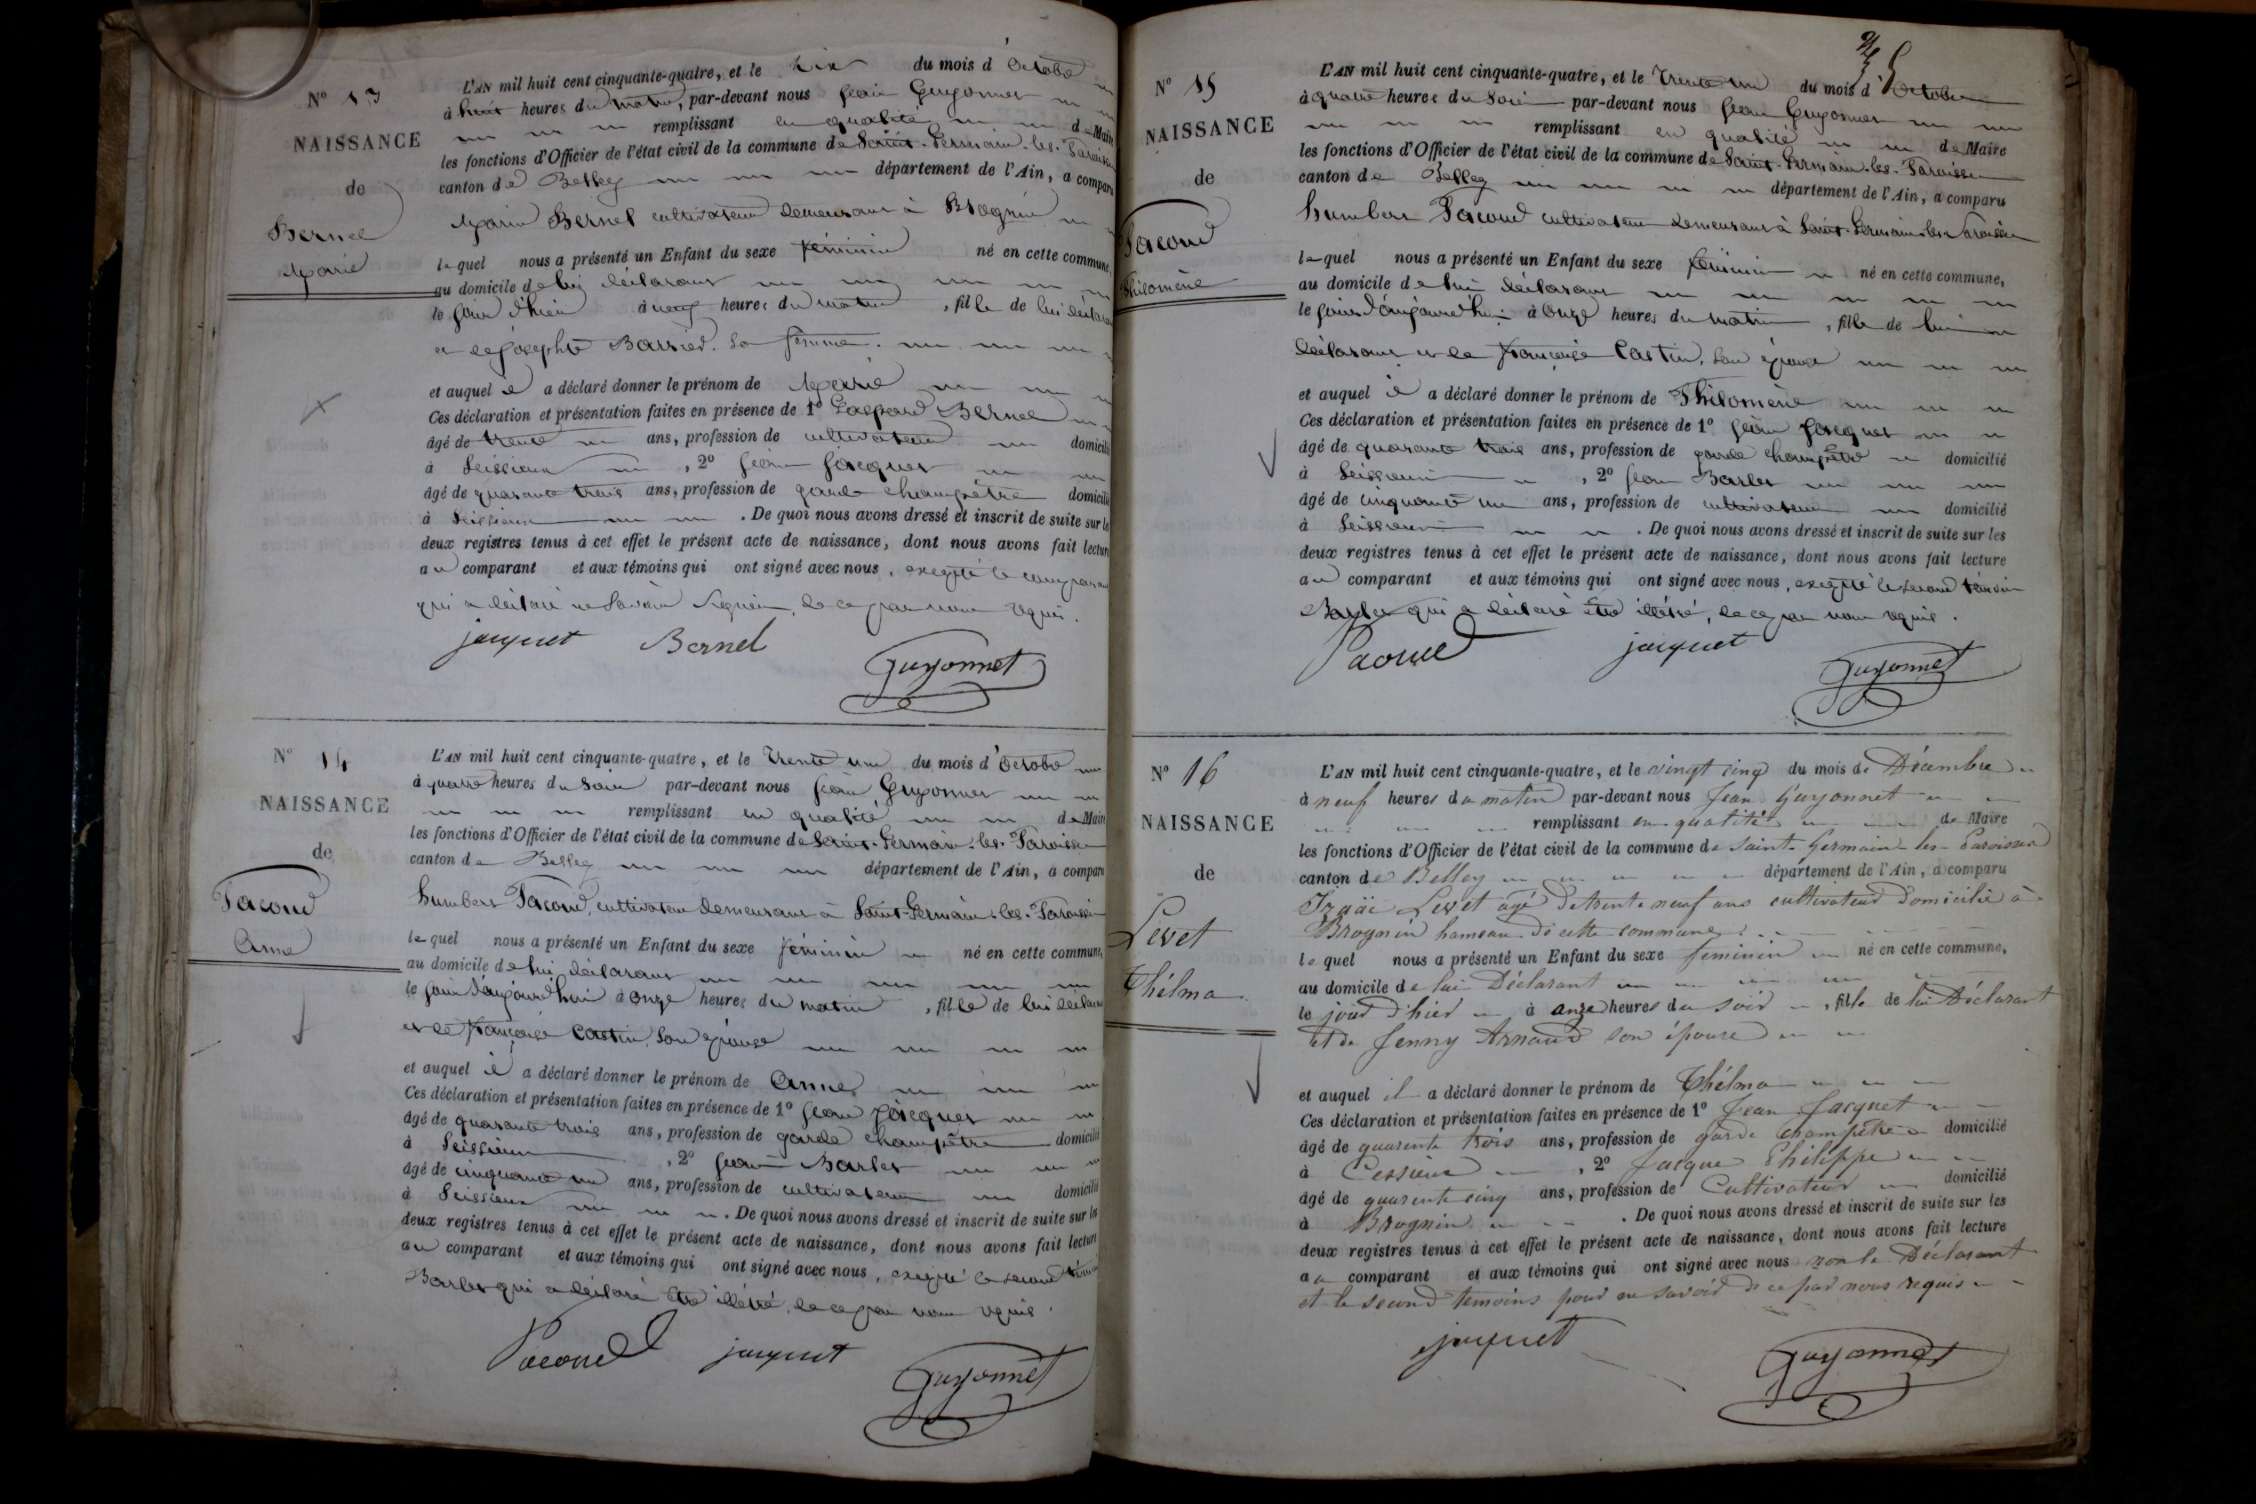 N° 13
NAISSANCE
de
Bernel
Marie
L'AN mil huit cent cinquante-quatre, et le dix du mois d'Octobre
à huit heures du matin, par-devant nous Jean Guyonnet
remplissant en qualité de Maire
les fonctions d'Officier de l'état civil de la commune de Saint-Germain-les-Paroisses
canton de Belley département de l'Ain, a comparu
Marin Bernel cultivateur demeurant à Brognin
lequel nous a présenté un Enfant du sexe féminin né en cette commune,
au domicile de lui déclarant
le jour d'hier à neuf heures du matin, fille de lui déclarant
et de Josephte sa femme.
et auquel il a déclaré donner le prénom de Marie
Ces déclaration et présentation faites en présence de 1° Gaspard Bernel
âgé de trente ans, profession de cultivateur domicilié
à Seissieux, 2° Jean Jacquet
âgé de quarante trois ans, profession de garde champêtre domicilié
à Seissieux. De quoi nous avons dressé et inscrit de suite sur les
deux registres tenus à cet effet le présent acte de naissance, dont nous avons fait lecture
au comparant et aux témoins qui ont signé avec nous, excepté le comparant
qui a déclaré ne savoir signer, de ce par nous requis.
jacquet Bernel
Guyonnet
N° 14
NAISSANCE
de
Pacoud
Anne
L'AN mil huit cent cinquante-quatre, et le trente un du mois d'Octobre
à quatre heures du soir par-devant nous Jean Guyonnet
remplissant en qualité de Maire
les fonctions d'Officier de l'état civil de la commune de Saint-Germain-les-Paroisses
canton de Belley département de l'Ain, a comparu
humbert Pacoud, cultivateur demeurant à Saint-Germain-les-Paroisses
lequel nous a présenté un Enfant du sexe féminin né en cette commune,
au domicile de lui déclarant
le jour d'aujourd'hui à onze heures du matin, fille de lui déclarant
et de françoise Castin, son épouse
et auquel il a déclaré donner le prénom de Anne
Ces déclaration et présentation faites en présence de 1° Jean Jacquet
âgé de quarante trois ans, profession de garde champêtre domicilié
à Seissieux, 2° Jean Barlet
âgé de cinquante un ans, profession de cultivateur domicilié
à Seissieux. De quoi nous avons dressé et inscrit de suite sur les
deux registres tenus à cet effet le présent acte de naissance, dont nous avons fait lecture
au comparant et aux témoins qui ont signé avec nous, excepté le second témoin
Barlet qui a déclaré être illétré, de ce par nous requis.
Pacoud jacquet
Guyonnet
N° 15
NAISSANCE
de
Pacoud
Philomène
L'AN mil huit cent cinquante-quatre, et le trente un du mois d'Octobre
à quatre heures du soir par-devant nous Jean Guyonnet
remplissant en qualité de Maire
les fonctions d'Officier de l'état civil de la commune de Saint-Germain-les-Paroisses
canton de Belley département de l'Ain, a comparu
humbert Pacoud cultivateur demeurant à Saint-Germain-les-Paroisses
lequel nous a présenté un Enfant du sexe féminin né en cette commune,
au domicile de lui déclarant
le jour d'aujourd'hui à onze heures du matin, fille de lui
déclarant et de françoise Castin, son épouse
et auquel il a déclaré donner le prénom de Philomène
Ces déclaration et présentation faites en présence de 1° Jean Jacquet
âgé de quarante trois ans, profession de garde champêtre domicilié
à Seissieux, 2° Jean Barlet
âgé de cinquante un ans, profession de cultivateur domicilié
à Seissieux. De quoi nous avons dressé et inscrit de suite sur les
deux registres tenus à cet effet le présent acte de naissance, dont nous avons fait lecture
au comparant et aux témoins qui ont signé avec nous, excepté le second témoin
Barlet qui a déclaré être illétré, de ce par nous requis.
Pacoud jacquet
Guyonnet
N° 16
NAISSANCE
de
Levet
Thélma
L'AN mil huit cent cinquante-quatre, et le vingt cinq du mois de Décembre
à neuf heures du matin par-devant nous Jean Guyonnet
remplissant en qualité de Maire
les fonctions d'Officier de l'état civil de la commune de Saint-Germain-les-Paroisses
canton de Belley département de l'Ain, a comparu
Izaäc Levet agé de trente neuf ans cultivateur domicilié à
Brognin hameau de cette commune
lequel nous a présenté un Enfant du sexe feminin né en cette commune,
au domicile de lui Déclarant
le jour d'hier à onze heures du soir, fille de lui Déclarant
et de Jenny Arnaud son épouse
et auquel il a déclaré donner le prénom de Thélma
Ces déclaration et présentation faites en présence de 1° Jean Jacquet
âgé de quarente trois ans, profession de garde champêtre domicilié
à Cessieux, 2° Jacque Philippe
âgé de quarente cinq ans, profession de Cultivateur domicilié
à Brognin. De quoi nous avons dressé et inscrit de suite sur les
deux registres tenus à cet effet le présent acte de naissance, dont nous avons fait lecture
au comparant et aux témoins qui ont signé avec nous non le Déclarant
et le second temoins pour ne savoir de ce par nous requis
jacquet
Guyonnet